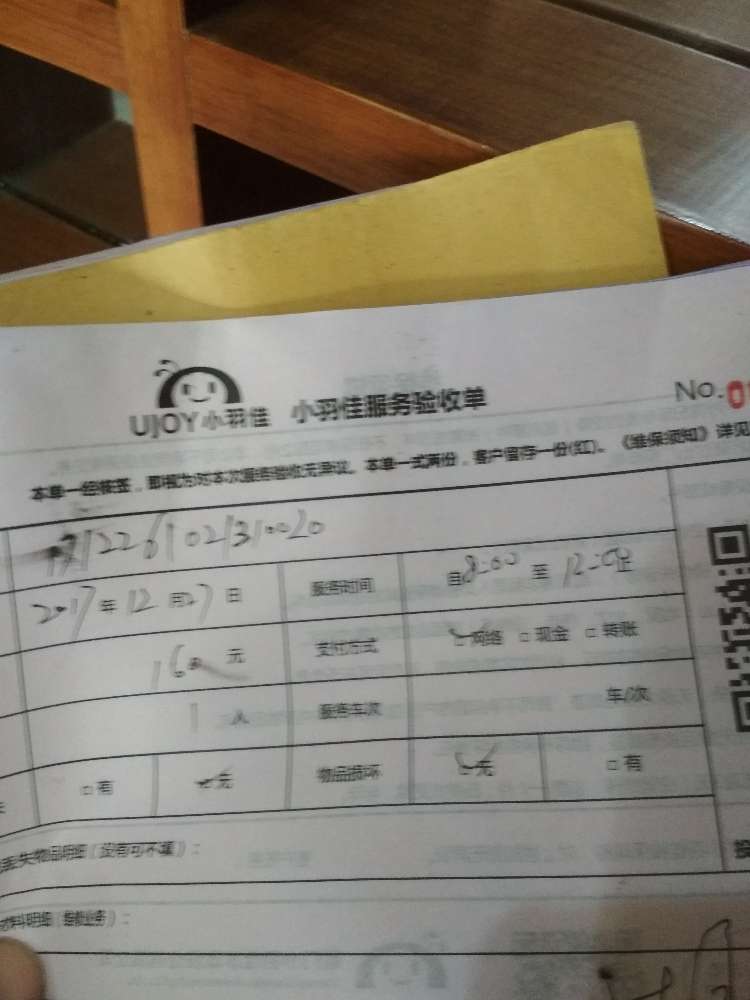 UJOY小羽佳 小羽佳服务验收单 No.0
本单一经核签，即视为对本次服务验收无异议。本单一式两份，客户留存一份(红)。《维保须知》详见
2017年12月27日 服务时间 自8:00至12:00止
160元 支付方式 网络 □现金 □转账
1人 服务车次 车/次
□有 无 物品损坏 无 □有
失物品明细（没有可不填）：
材料明细（维修业务）：